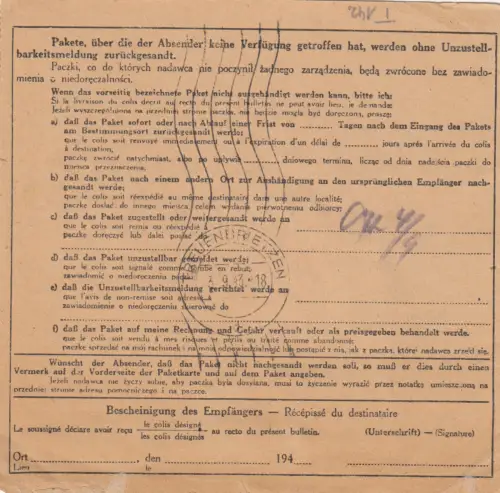 I 142
Pakete, über die der Absender keine Verfügung getroffen hat, werden ohne Unzustell-
barkeitsmeldung zurückgesandt.
Paczki, co do których nadawca nie poczynił żadnego zarządzenia, będą zwrócone bez zawiado-
mienia o niedoręczalności.
Wenn das vorseitig bezeichnete Paket nicht ausgehändigt werden kann, bitte ich:
Si la livraison du colis décrit au recto du présent bulletin ne peut avoir lieu, je demande:
Jeżeli wyszczególniona na przedniej stronie paczka, nie będzie mogła być doręczona, proszę:
a) daß das Paket sofort oder nach Ablauf einer Frist von ........ Tagen nach dem Eingang des Pakets
am Bestimmungsort zurückgesandt werde;
que le colis soit renvoyé immédiatement ou à l'expiration d'un délai de ........ jours après l'arrivée du colis
à destination;
paczkę zwrócić natychmiast, albo po upływie ........ dniowego terminu, licząc od dnia nadejścia paczki do
miejsca przeznaczenia.
b) daß das Paket nach einem andern Ort zur Aushändigung an den ursprünglichen Empfänger nach-
gesandt werde;
que le colis soit réexpédié au même destinataire dans une autre localité;
paczkę dosłać do innego miejsca celem wydania pierwotnemu odbiorcy;
c) daß das Paket zugestellt oder weitergesandt werde an
que le colis soit remis ou réexpédié à
paczkę doręczyć lub dalej posłać do
d) daß das Paket unzustellbar gemeldet werde;
que le colis soit signalé comme tombé en rebut;
zawiadomić o niedoręczeniu paczki
e) daß die Unzustellbarkeitsmeldung gerichtet werde an
que l'avis de non-remise soit adressé à
zawiadomienie o niedoręczeniu skierować do
f) daß das Paket auf meine Rechnung und Gefahr verkauft oder als preisgegeben behandelt werde.
que le colis soit vendu à mes risques et périls ou traité comme abandonné;
paczkę sprzedać na mój rachunek i na moją odpowiedzialność lub postąpić z nią, jak z paczką, której nadawca zrzekł się.
Wünscht der Absender, daß das Paket nicht nachgesandt werden soll, so muß er dies durch einen
Vermerk auf der Vorderseite der Paketkarte und auf dem Paket angeben.
Jeżeli nadawca nie życzy sobie, aby paczka była dosyłana, musi to życzenie wyrazić przez notatkę umieszczoną na
przedniej stronie adresu pomocniczego i na paczce.
Bescheinigung des Empfängers — Récépissé du destinataire
Le soussigné déclare avoir reçu le colis désigné / les colis désignés au recto du présent bulletin. (Unterschrift) — (Signature)
Ort ........, den ........ 194
Lieu le
TREUENBRIETZEN